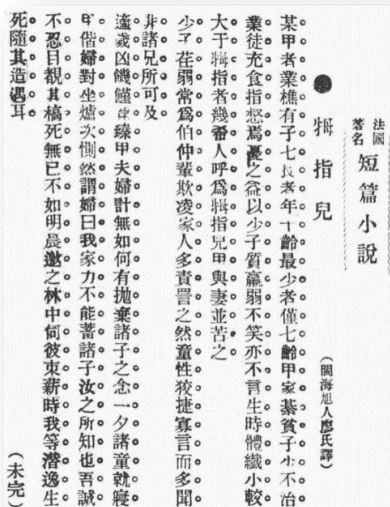 法國
著名
短篇小說
● 拇指兒
(閩海旭人廖氏譯)
某甲者業樵有子七長者年十齡最少者僅七齡甲家綦貧子少不治
業徒充食指慇焉憂之益以少子質羸弱不笑亦不言生時體纖小較
大于拇指者幾希人呼爲拇指兒甲與妻並苦之
少子荏弱常爲伯仲輩欺凌家人多責詈之然童性狡捷寡言而多聞
非諸兄所可及
適歲凶饑饉荐臻甲夫婦計無如何有拋棄諸子之念一夕諸童就寢
甲偕婦對坐爐次惻然謂婦曰我家力不能蓄諸子汝之所知也吾誠
不忍目覩其槁死無已不如明晨邀之林中伺彼束薪時我等潛逸生
死隨其造遇耳
(未完)